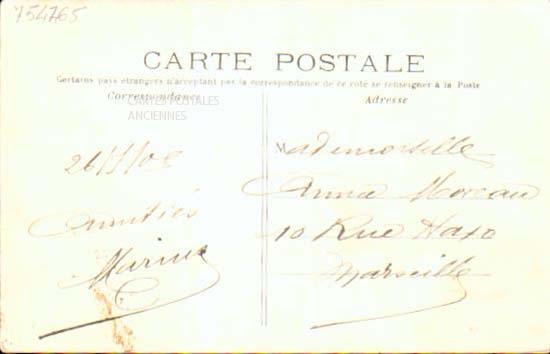 754765
CARTE POSTALE
Certains pays étrangers n'acceptant pas la correspondance de ce côté se renseigner à la Poste
Correspondance
CARTES POSTALES
ANCIENNES
26/
Amitiés
Marius
Adresse
Mademoiselle
Anna Moreau
10 Rue Haxo
Marseille